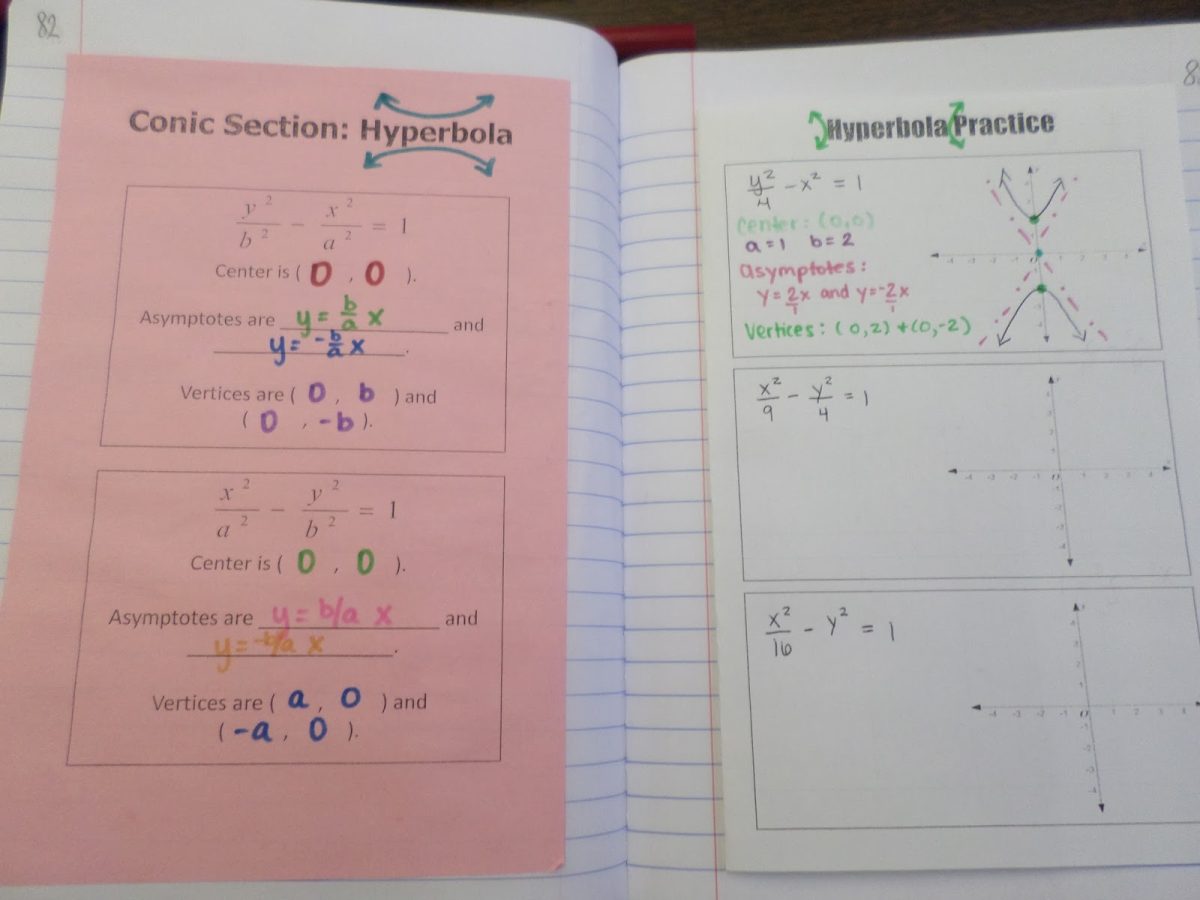 82
Conic Section: Hyperbola
y² / b² − x² / a² = 1
Center is ( 0 , 0 ).
Asymptotes are y = b/a x and
y = -b/a x.
Vertices are ( 0 , b ) and
( 0 , -b ).
x² / a² − y² / b² = 1
Center is ( 0 , 0 ).
Asymptotes are y = b/a x and
y = -b/a x.
Vertices are ( a , 0 ) and
( -a , 0 ).
8
Hyperbola Practice
y²/4 - x² = 1
Center: (0,0)
a=1 b=2
asymptotes:
y = 2/1 x and y = -2/1 x
Vertices: (0,2) + (0,-2)
x²/9 - y²/4 = 1
x²/16 - y² = 1